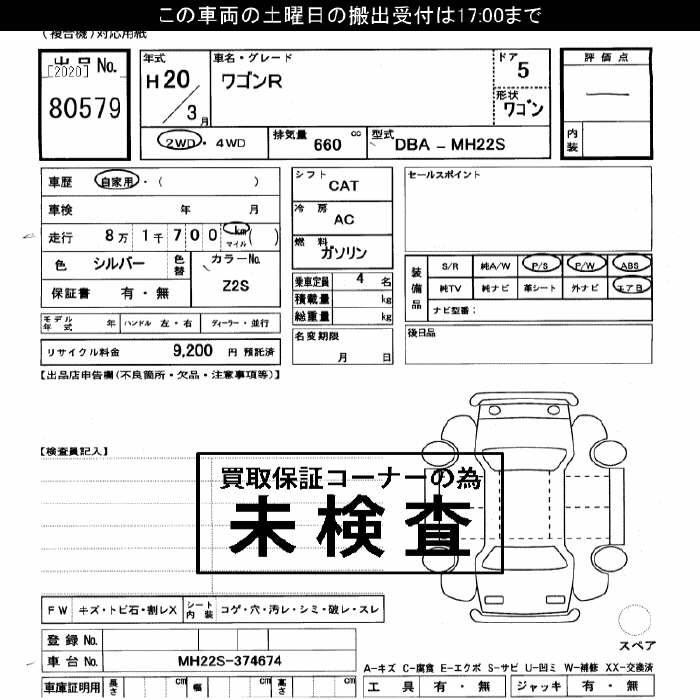 この車両の土曜日の搬出受付は17:00まで
(複合機)対応用紙
出品 No.
[2020]
80579
年式
H20
/
3月
車名・グレード
ワゴンR
ドア
5
形状
ワゴン
評価点
内装
2WD・4WD
排気量 660 cc
型式 DBA - MH22S
車歴 自家用・( )
車検 年 月
走行 8万 1千 7 0 0 km マイル ( )
色 シルバー 色替
カラーNo.
Z2S
保証書 有・無
シフト
CAT
冷房
AC
燃料
ガソリン
乗車定員 4 名
積載量 kg
総重量 kg
セールスポイント
装備品
S/R 純A/W P/S P/W ABS
純TV 純ナビ 革シート 外ナビ エアB
ナビ型番:
モデル年式 年 ハンドル 左・右 ディーラー・並行
リサイクル料金 9,200 円 預託済
名変期限
月 日
後日品
【出品店申告欄(不良箇所・欠品・注意事項等)】
【検査員記入】
買取保証コーナーの為
未検査
FW キズ・トビ石・割レX シート内装 コゲ・穴・汚レ・シミ・破レ・スレ
登録 No.
車台 No. MH22S-374674
車庫証明用 長さ cm 幅 cm 高さ cm
スペア
A-キズ C-腐食 E-エクボ S-サビ U-凹ミ W-補修 XX-交換済
工具 有・無 ジャッキ 有・無